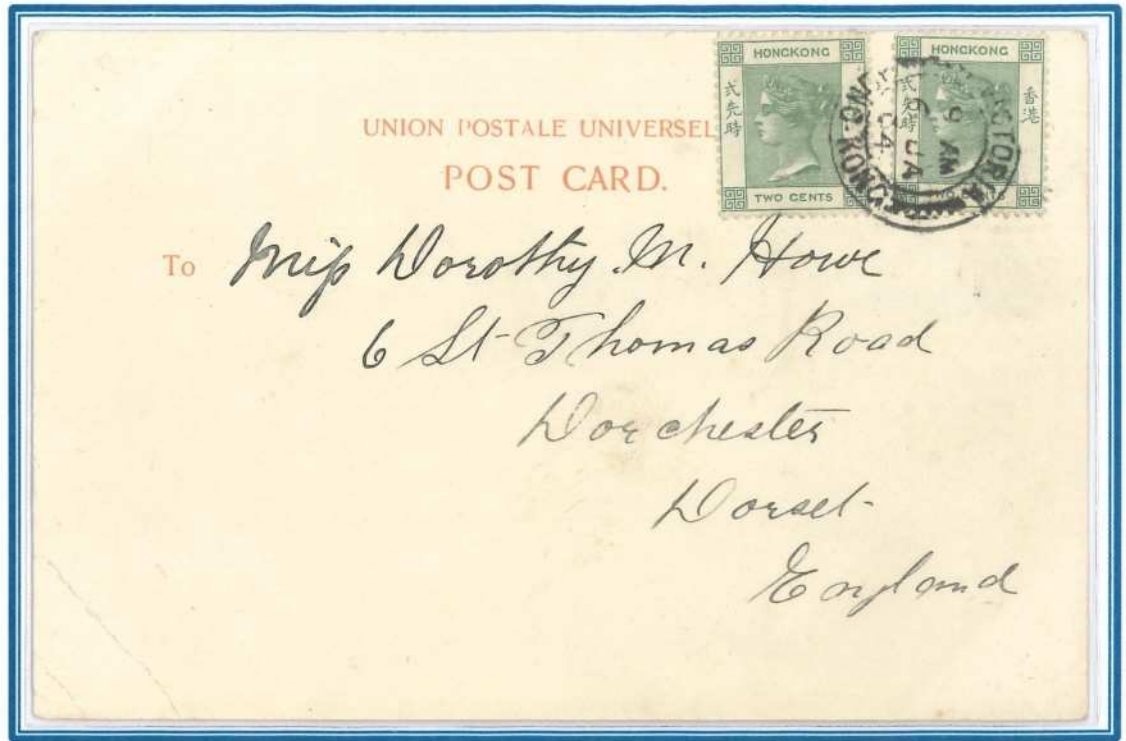 UNION POSTALE UNIVERSEL
POST CARD.
HONGKONG
弍先時
TWO CENTS
HONGKONG
弍先時
香港
VICTORIA
9 AM
6 JA
04
HONG KONG
To Miss Dorothy. M. Howe
6 St Thomas Road
Dorchester
Dorset
England